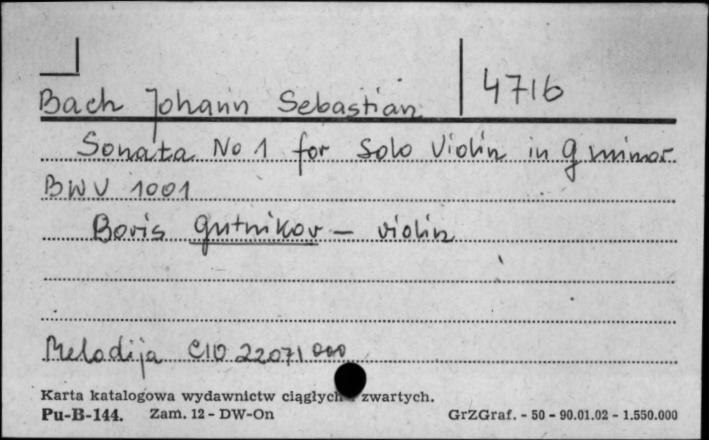 Bach Johann Sebastian 4716
Sonata No 1 for Solo Violin in g minor
BWV 1001
Boris Gutnikov – violin
Melodija C10 22071 000
Karta katalogowa wydawnictw ciągłych zwartych.
Pu-B-144. Zam. 12 - DW-On GrZGraf. - 50 - 90.01.02 - 1.550.000